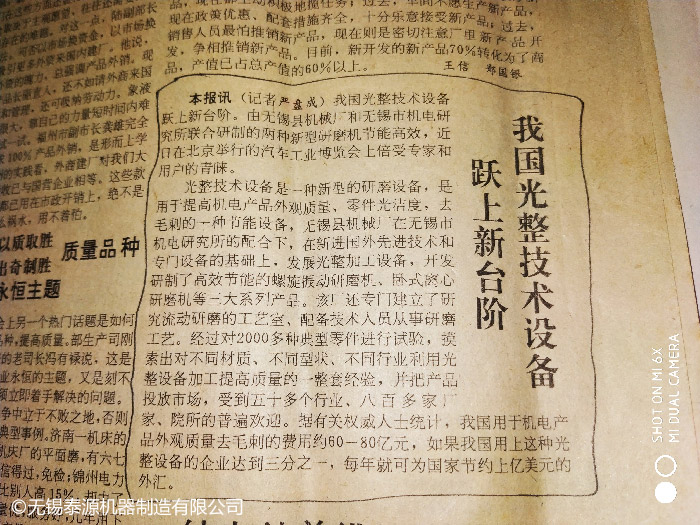 现在政策优惠、配套措施齐全，十分乐意接受新产品；过去，
销售人员最怕推销新产品，现在则是密切注意厂里新产品开
发，争相推销新产品。目前，新开发的新产品70％转化为了商
品，产值已占总产值的60％以上。
王信 郑国银
我国光整技术设备
跃上新台阶
本报讯（记者严鑫成）我国光整技术设备
跃上新台阶。由无锡县机械厂和无锡市机电研
究所联合研制的两种新型研磨机节能高效，近
日在北京举行的汽车工业博览会上倍受专家和
用户的青睐。
光整技术设备是一种新型的研磨设备，是
用于提高机电产品外观质量、零件光洁度，去
毛刺的一种节能设备，无锡县机械厂在无锡市
机电研究所的配合下，在新进国外先进技术和
专门设备的基础上，发展光整加工设备，开发
研制了高效节能的螺旋振动研磨机、卧式离心
研磨机等三大系列产品。该厂还专门建立了研
究流动研磨的工艺室、配备技术人员从事研磨
工艺。经过对2000多种典型零件进行试验，摸
索出对不同材质、不同型状、不同行业利用光
整设备加工提高质量的一整套经验，并把产品
投放市场，受到五十多个行业、八百多家厂
家、院所的普遍欢迎。据有关权威人士统计，我国用于机电产
品外观质量去毛刺的费用约60－80亿元，如果我国用上这种光
整设备的企业达到三分之一，每年就可为国家节约上亿美元的
外汇。
以质取胜
出奇制胜
永恒主题
质量品种
会上另一个热门话题是如何
品种，提高质量。部生产司刚
的老司长冯有禄说，这是
业永恒的主题，又是刻不
须立即着手解决的问题。
争中立于不败之地，否则
典型事例。济南一机床的
机床厂的平面磨，有六七
信得过，免检；锦州电力
比别人高15％，却力
SHOT ON MI 6X
MI DUAL CAMERA
©无锡泰源机器制造有限公司